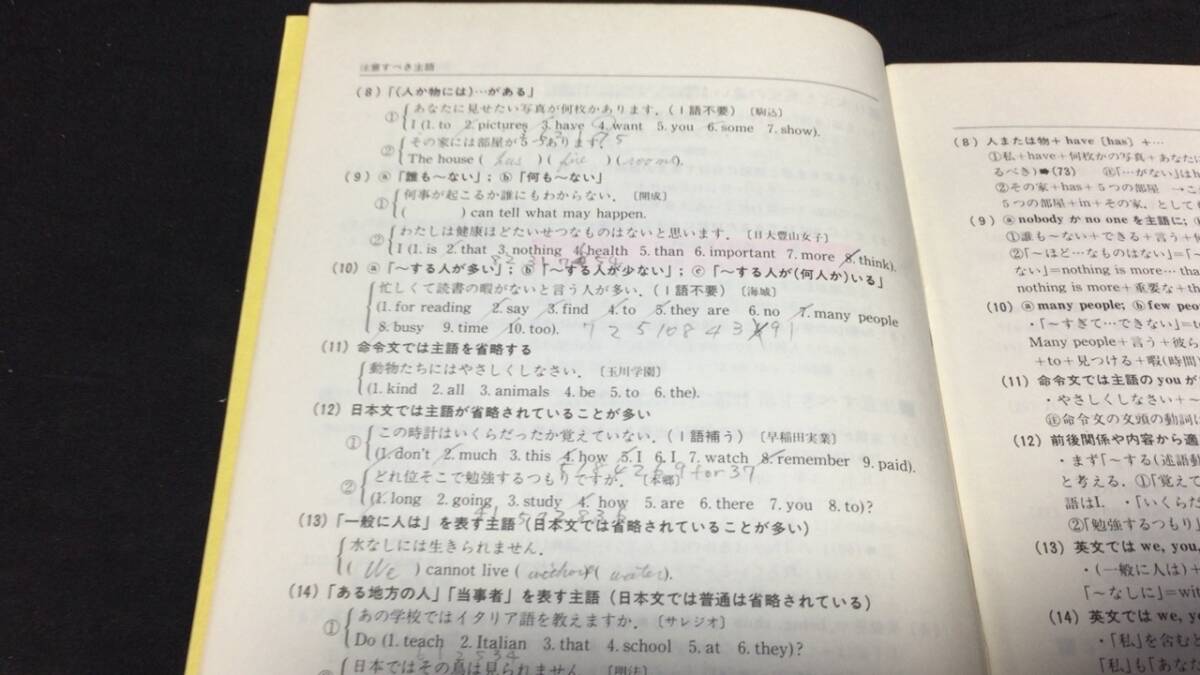 注意すべき主語
(8)「(人か物には)…がある」
① あなたに見せたい写真が何枚かあります.(1語不要)〔駒込〕
I (1. to 2. pictures 3. have 4. want 5. you 6. some 7. show).
② その家には部屋が5つあります.
The house ( has ) ( five ) ( rooms ).
(9) ⓐ「誰も〜ない」; ⓑ「何も〜ない」
① 何事が起こるか誰にもわからない.〔開成〕
( ) can tell what may happen.
② わたしは健康ほどたいせつなものはないと思います.〔日大豊山女子〕
I (1. is 2. that 3. nothing 4. health 5. than 6. important 7. more 8. think).
(10) ⓐ「〜する人が多い」; ⓑ「〜する人が少ない」; ⓒ「〜する人が(何人か)いる」
忙しくて読書の暇がないと言う人が多い.(1語不要)〔海城〕
(1. for reading 2. say 3. find 4. to 5. they are 6. no 7. many people
8. busy 9. time 10. too). 7 2 5 10 8 4 3 9 1
(11) 命令文では主語を省略する
動物たちにはやさしくしなさい.〔玉川学園〕
(1. kind 2. all 3. animals 4. be 5. to 6. the).
(12) 日本文では主語が省略されていることが多い
① この時計はいくらだったか覚えていない.(1語補う)〔早稲田実業〕
(1. don't 2. much 3. this 4. how 5. I 6. I 7. watch 8. remember 9. paid).
5 1 8 4 2 6 9 for 3 7
② どれ位そこで勉強するつもりですか.〔本郷〕
(1. long 2. going 3. study 4. how 5. are 6. there 7. you 8. to)?
(13)「一般に人は」を表す主語(日本文では省略されていることが多い)
水なしには生きられません.
( We ) cannot live ( without ) ( water ).
(14)「ある地方の人」「当事者」を表す主語(日本文では普通は省略されている)
① あの学校ではイタリア語を教えますか.〔サレジオ〕
Do (1. teach 2. Italian 3. that 4. school 5. at 6. they)?
6 1 2 5 3 4
② 日本ではその鳥は見られません.〔明法〕
(8) 人または物+have〔has〕+…
①私+have+何枚かの写真+あなたに
るべき)➡(73) 注「…がない」はh
②その家+has+5つの部屋 →こ
5つの部屋+in+その家.として
(9) ⓐ nobody か no one を主語に;
①誰も〜ない+できる+言う+何
②「〜ほど…なものはない」=「〜
ない」=nothing is more… tha
nothing is more+重要な+th
(10) ⓐ many people; ⓑ few peo
・「〜すぎて…できない」=t
Many people+言う+彼ら
+to+見つける+暇(時間)
(11) 命令文では主語の you が
・やさしくしなさい+〜
注命令文の文頭の動詞は
(12) 前後関係や内容から適
・まず「〜する(述語動
と考える.①「覚えて
語はI. ・「いくらだ
②「勉強するつもり」
(13) 英文では we, you,
・(一般に人は)+
「〜なしに」=wit
(14) 英文では we, yo
・「私」を含むと
「私」も「あな